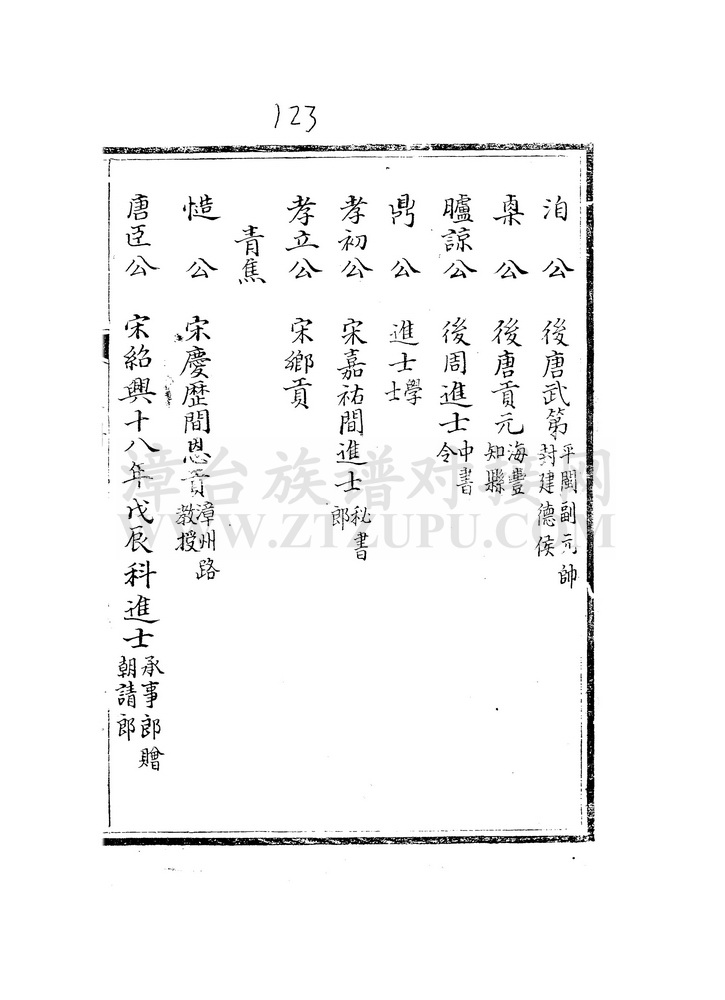 123
泊公 後唐武第 平閩副元帥 封建德侯
稟公 後唐貢元 海豐 知縣
臚諒公 後周進士 中書 令
鼎公 進士 學士
孝初公 宋嘉祐間進士 秘書 郎
孝立公 宋鄉貢
青焦
慥公 宋慶歷間恩貢 漳州路 教授
唐臣公 宋紹興十八年戊辰科進士 承事郎贈 朝請郎
漳台族谱对接网
WWW.ZTZUPU.COM